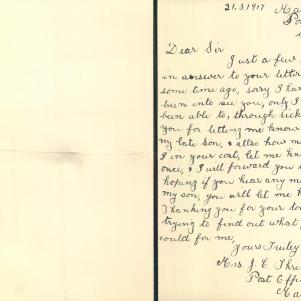 21.3.1917 Ha
Po
Dear Sir
Just a few
in answer to your letter
some time ago, sorry I ha
been into see you, only I
been able to through sick
you for letting me know
my late Son, & allso how m
I in your cost, let me kn
once, & I will forward you
hoping if you hear any m
my son, you will let me k
Thanking you for your to
trying to find out what
could for me,
Yours Truley
Mrs J. E. Thre
Post Offi
Ha